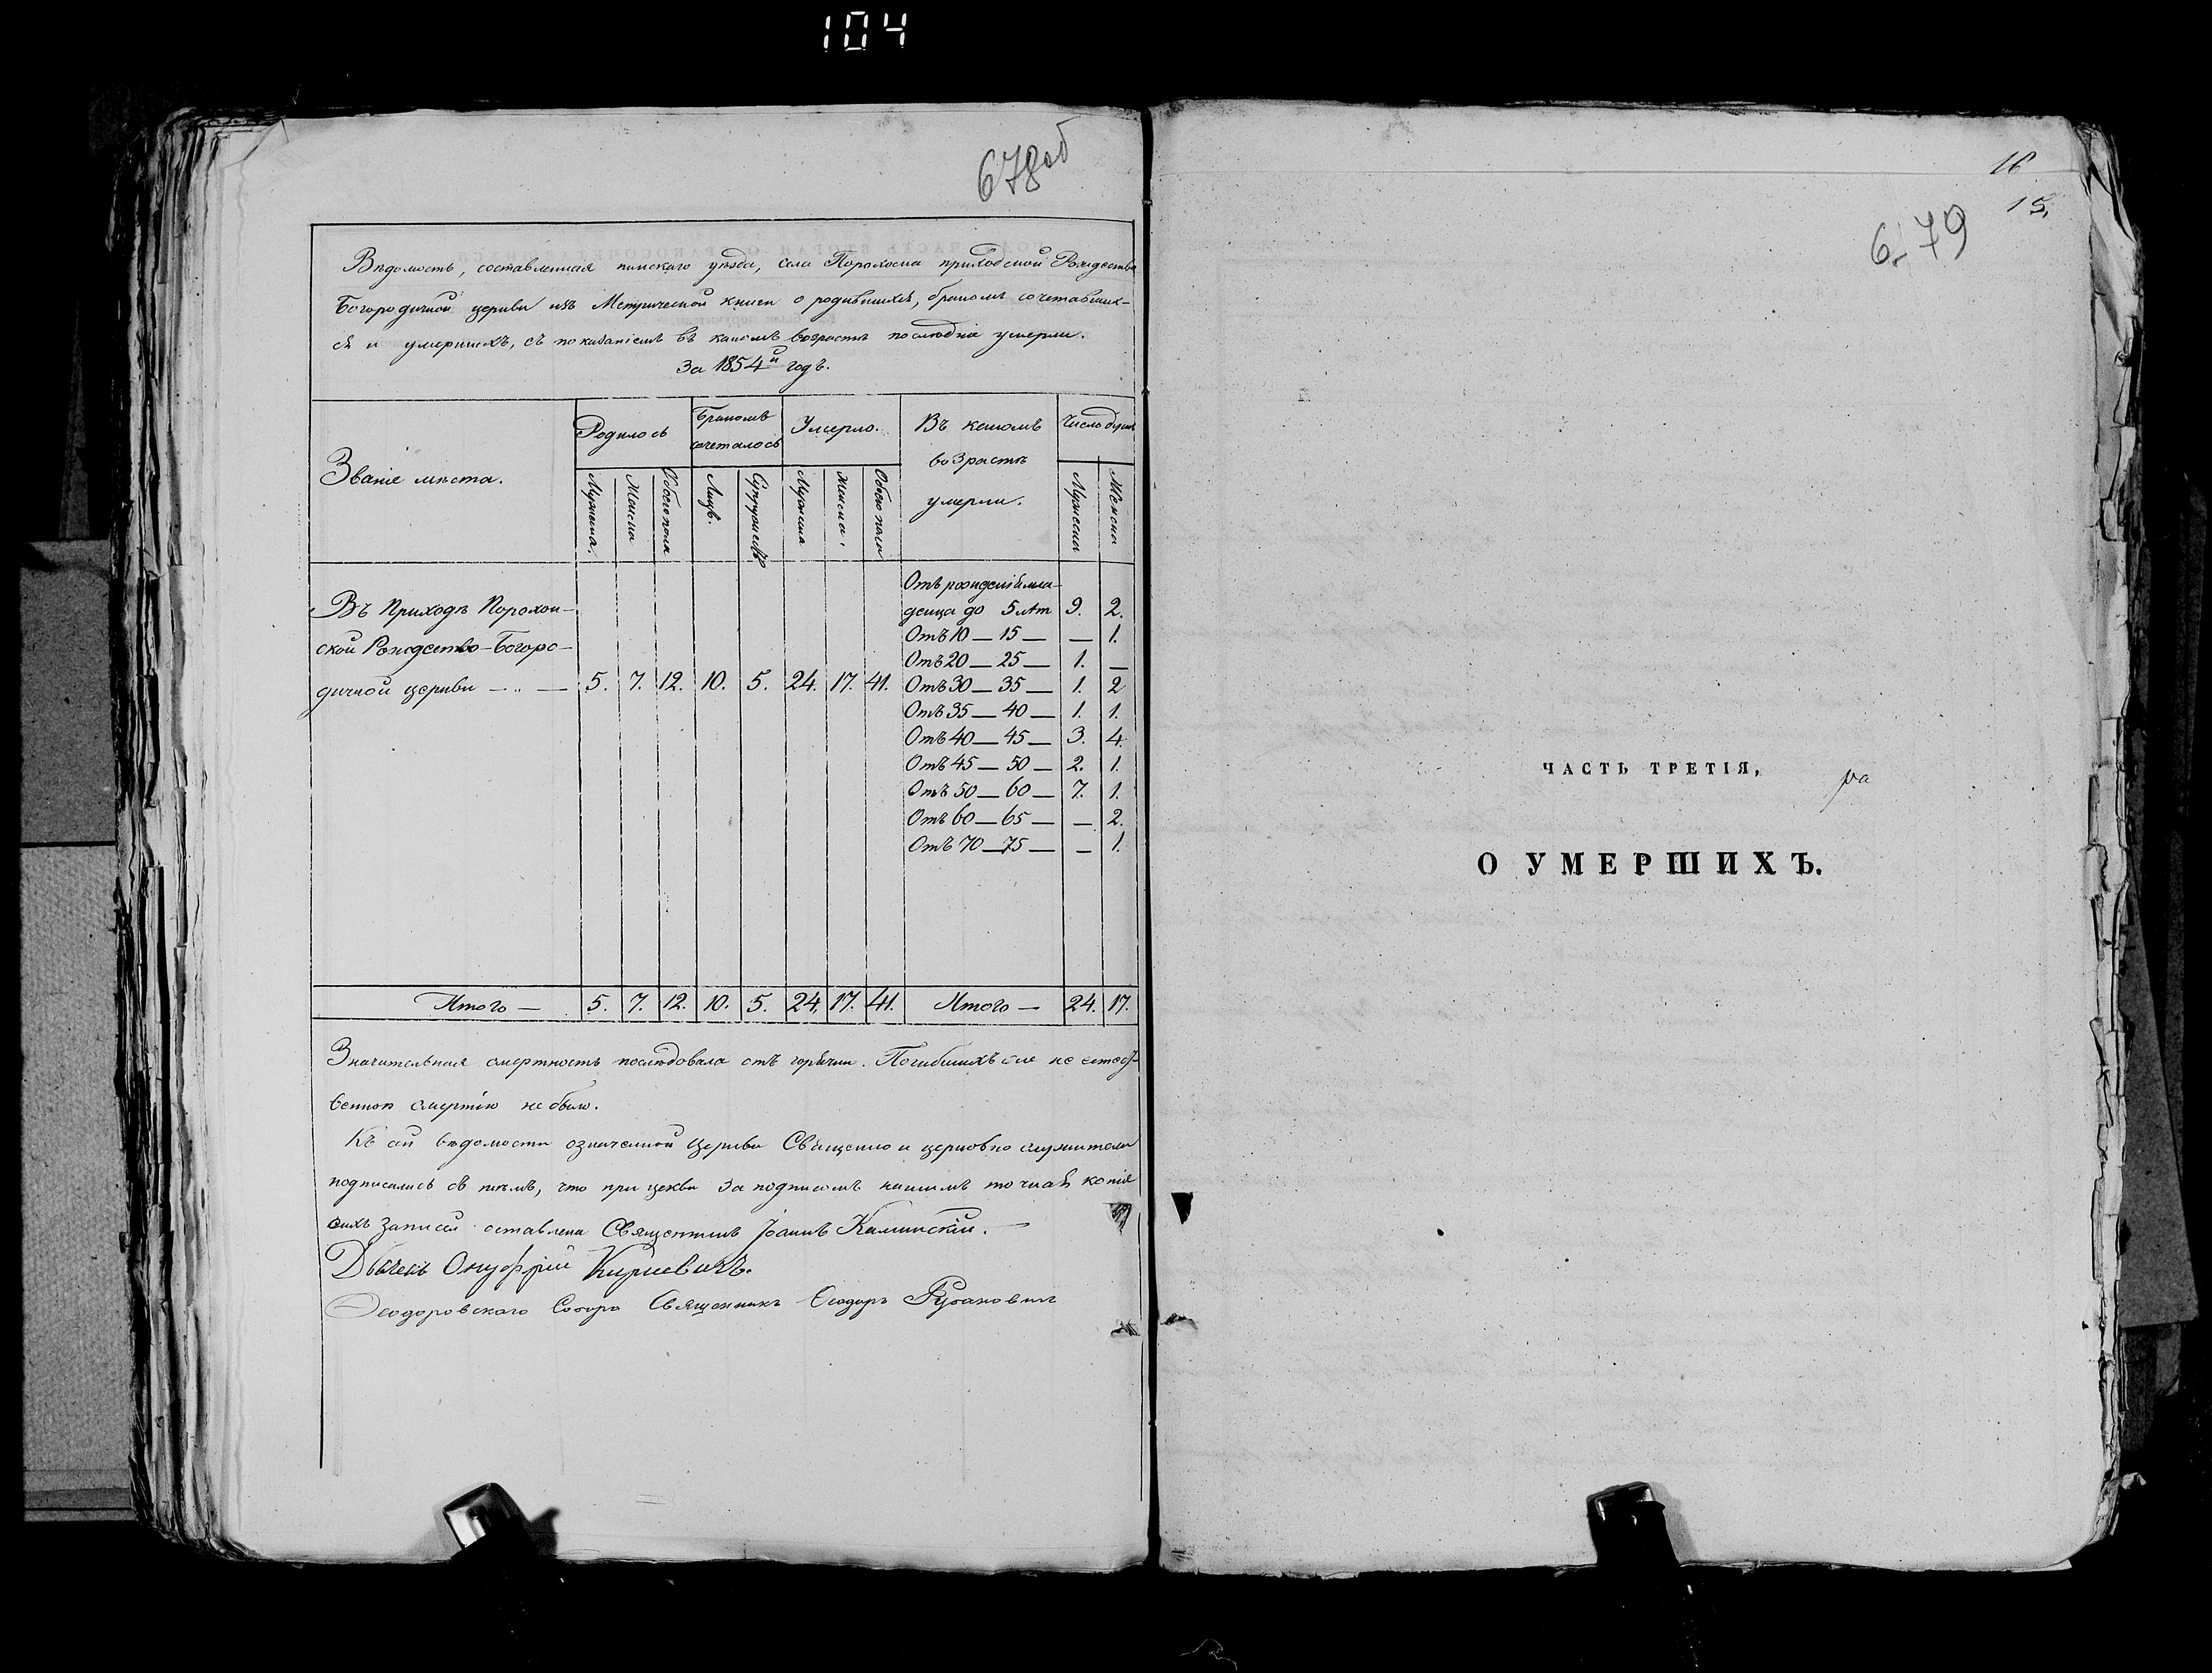 104
678об
Вѣдомость, составленная пинскаго уѣзда, села Порохоска приходской Рождества
Богородичной церкви изъ Метрической книги о родившихся, бракомъ сочетавших-
ся и умершихъ, съ показаніемъ въ какомъ возрастѣ послѣдніе умерли.
За 1854й годъ.
Званіе мѣста. Родилось Бракомъ сочеталось Умерло. Въ какомъ возрастѣ умерли. Число душъ
Мужеска. Женска Обоего пола Лицъ. Супружествъ Мужеска Женска. Обоего пола Мужеска Женска
Отъ рожденія мла-
Въ Приходѣ Порохон- денца до 5 лѣт 9. 2.
Отъ 10 — 15 — — 1.
ской Рождество-Богоро-
Отъ 20 — 25 — 1. —
дичной церкви — „ — 5. 7. 12. 10. 5. 24. 17. 41. Отъ 30 — 35 — 1. 2
Отъ 35 — 40 — 1. 1.
Отъ 40 — 45 — 3. 4.
Отъ 45 — 50 — 2. 1.
Отъ 50 — 60 — 7. 1.
Отъ 60 — 65 — — 2.
Отъ 70 — 75 — — 1.
Итого — 5. 7. 12. 10. 5. 24. 17. 41. Итого — 24. 17.
Значительная смертность послѣдовала отъ горячки. Погибшихъ не естест-
венною смертію не было.
Къ сей вѣдомости означенной Церкви Священно и церковно служители
подписались въ томъ, что при цекви за подписомъ нашимъ точная копія
сихъ записей оставлена Священникъ Іоаннъ Каминскій.
Дьячекъ Онуфрій Киркевичъ.
Ѳеодоровскаго Собора Священникъ Ѳеодоръ
16
15.
679
ЧАСТЬ ТРЕТІЯ,
О УМЕРШИХЪ.